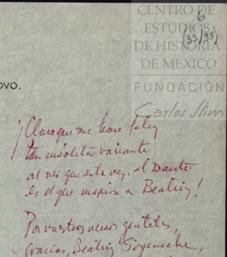 CENTRO DE
ESTUDIOS
DE HISTORIA
DE MEXICO
FUNDACIÓN
Carlos Slim
6
(33/38)
OVO.
¡Claro que me hace feliz
tan insólita variante
al ver que esta vez, el Dante
es el que inspira a Beatriz!
Por vuestros versos gentiles,
gracias, Beatriz Goyeneche,